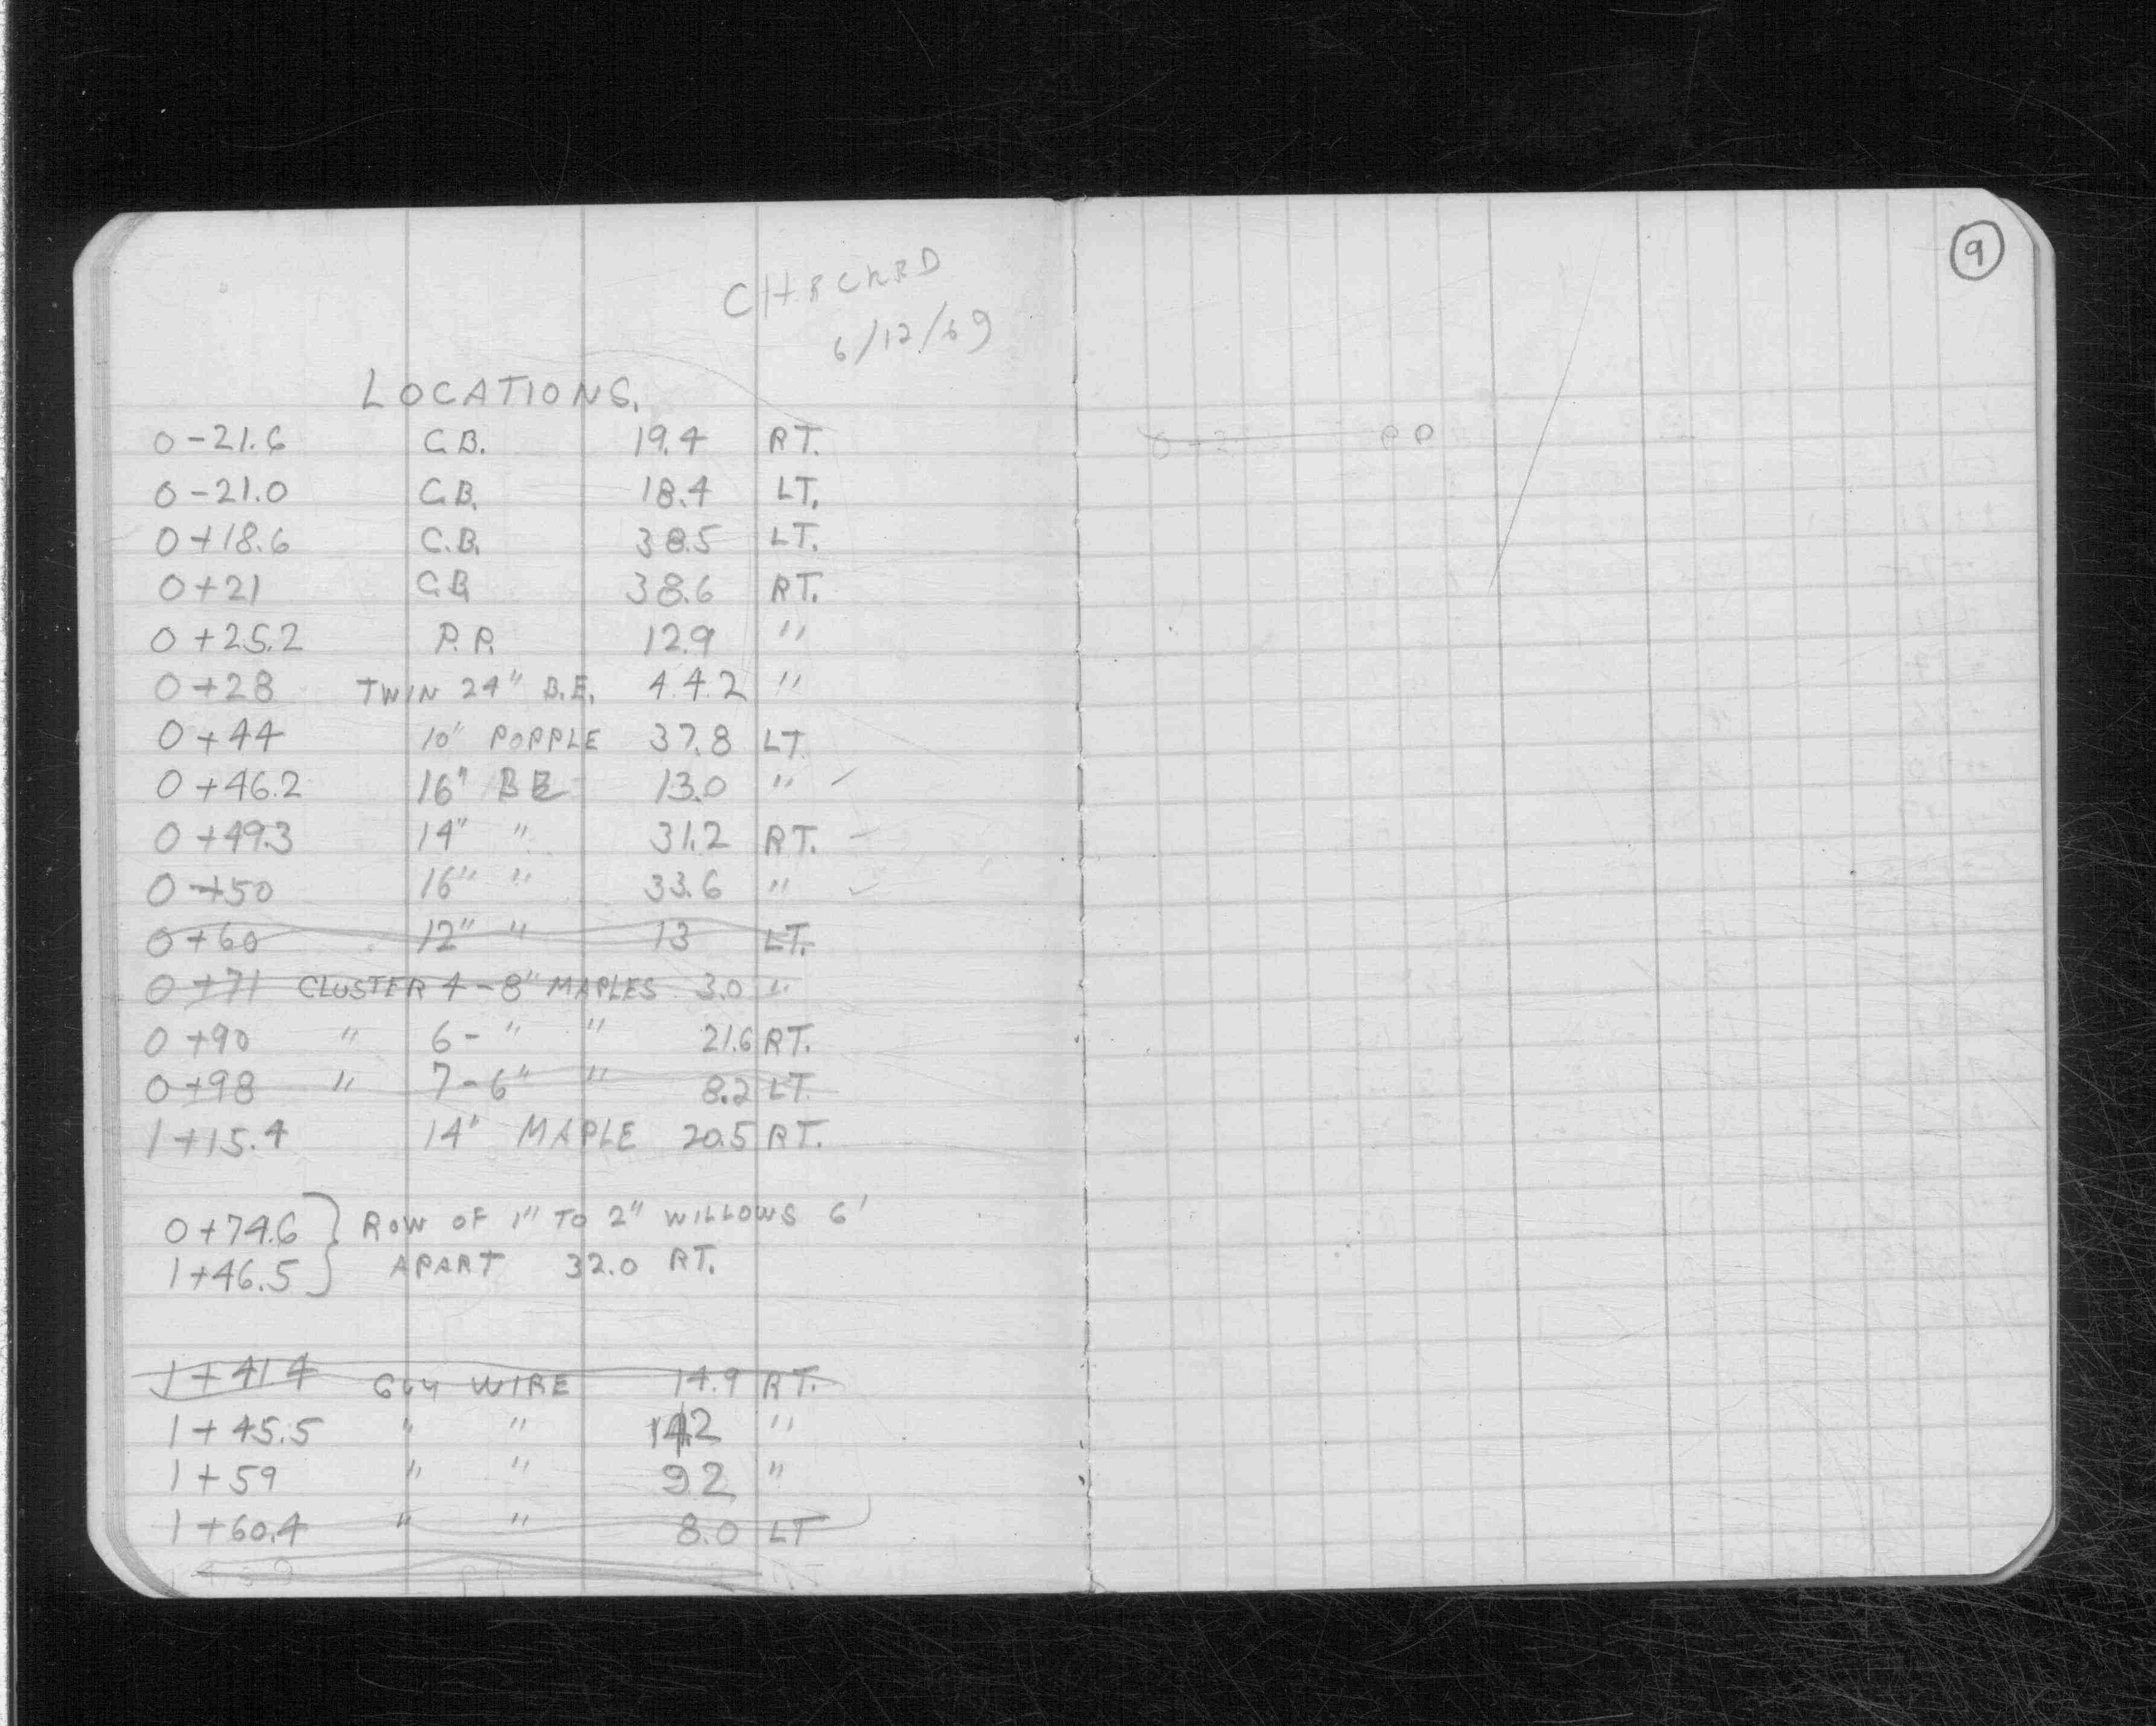 CHECKED
6/12/69
LOCATIONS.
0-21.6 C.B. 19.4 RT.
0-21.0 C.B. 18.4 LT.
0+18.6 C.B. 38.5 LT.
0+21 C.B 38.6 RT.
0+25.2 P.P. 12.9 "
0+28 TWIN 24" B.E. 44.2 "
0+44 10" POPPLE 37.8 LT
0+46.2 16" BE 13.0 "
0+49.3 14" " 31.2 RT.
0+50 16" " 33.6 "
0+60 12" " 13 LT.
0+71 CLUSTER 4-8" MAPLES 3.0 "
0+90 " 6-" " 21.6 RT.
0+98 " 7-6" " 8.2 LT.
1+15.4 14" MAPLE 20.5 RT.
0+74.6 } ROW OF 1" TO 2" WILLOWS 6'
1+46.5 } APART 32.0 RT.
1+41.4 GUY WIRE 14.9 RT.
1+45.5 " " 14.2 "
1+59 " " 9.2 "
1+60.4 " " 8.0 LT
9
PP